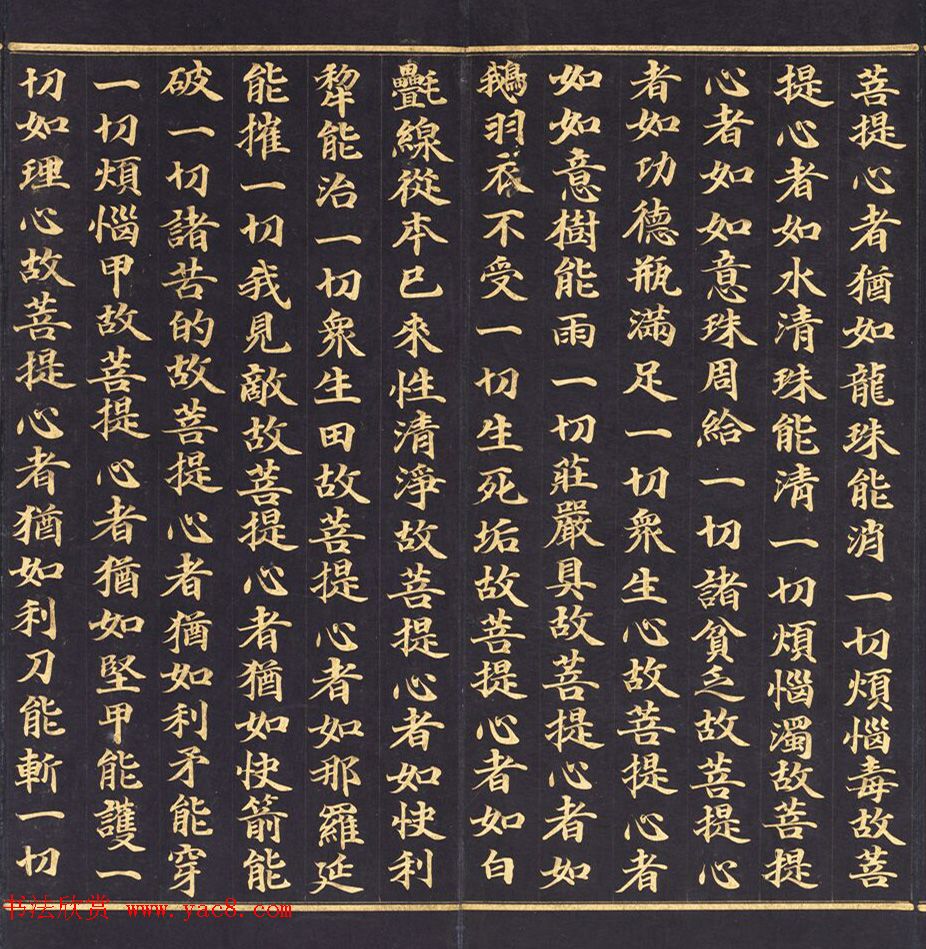 菩提心者猶如龍珠能消一切煩惱毒故菩
提心者如水清珠能清一切煩惱濁故菩提
心者如如意珠周給一切諸貧乏故菩提心
者如功德瓶滿足一切衆生心故菩提心者
如如意樹能雨一切莊嚴具故菩提心者如
鵝羽衣不受一切生死垢故菩提心者如白
㲲線從本已來性清淨故菩提心者如快利
犂能治一切衆生田故菩提心者如那羅延
能摧一切我見敵故菩提心者猶如快箭能
破一切諸苦的故菩提心者猶如利矛能穿
一切煩惱甲故菩提心者猶如堅甲能護一
切如理心故菩提心者猶如利刀能斬一切
书法欣赏 www.yac8.com